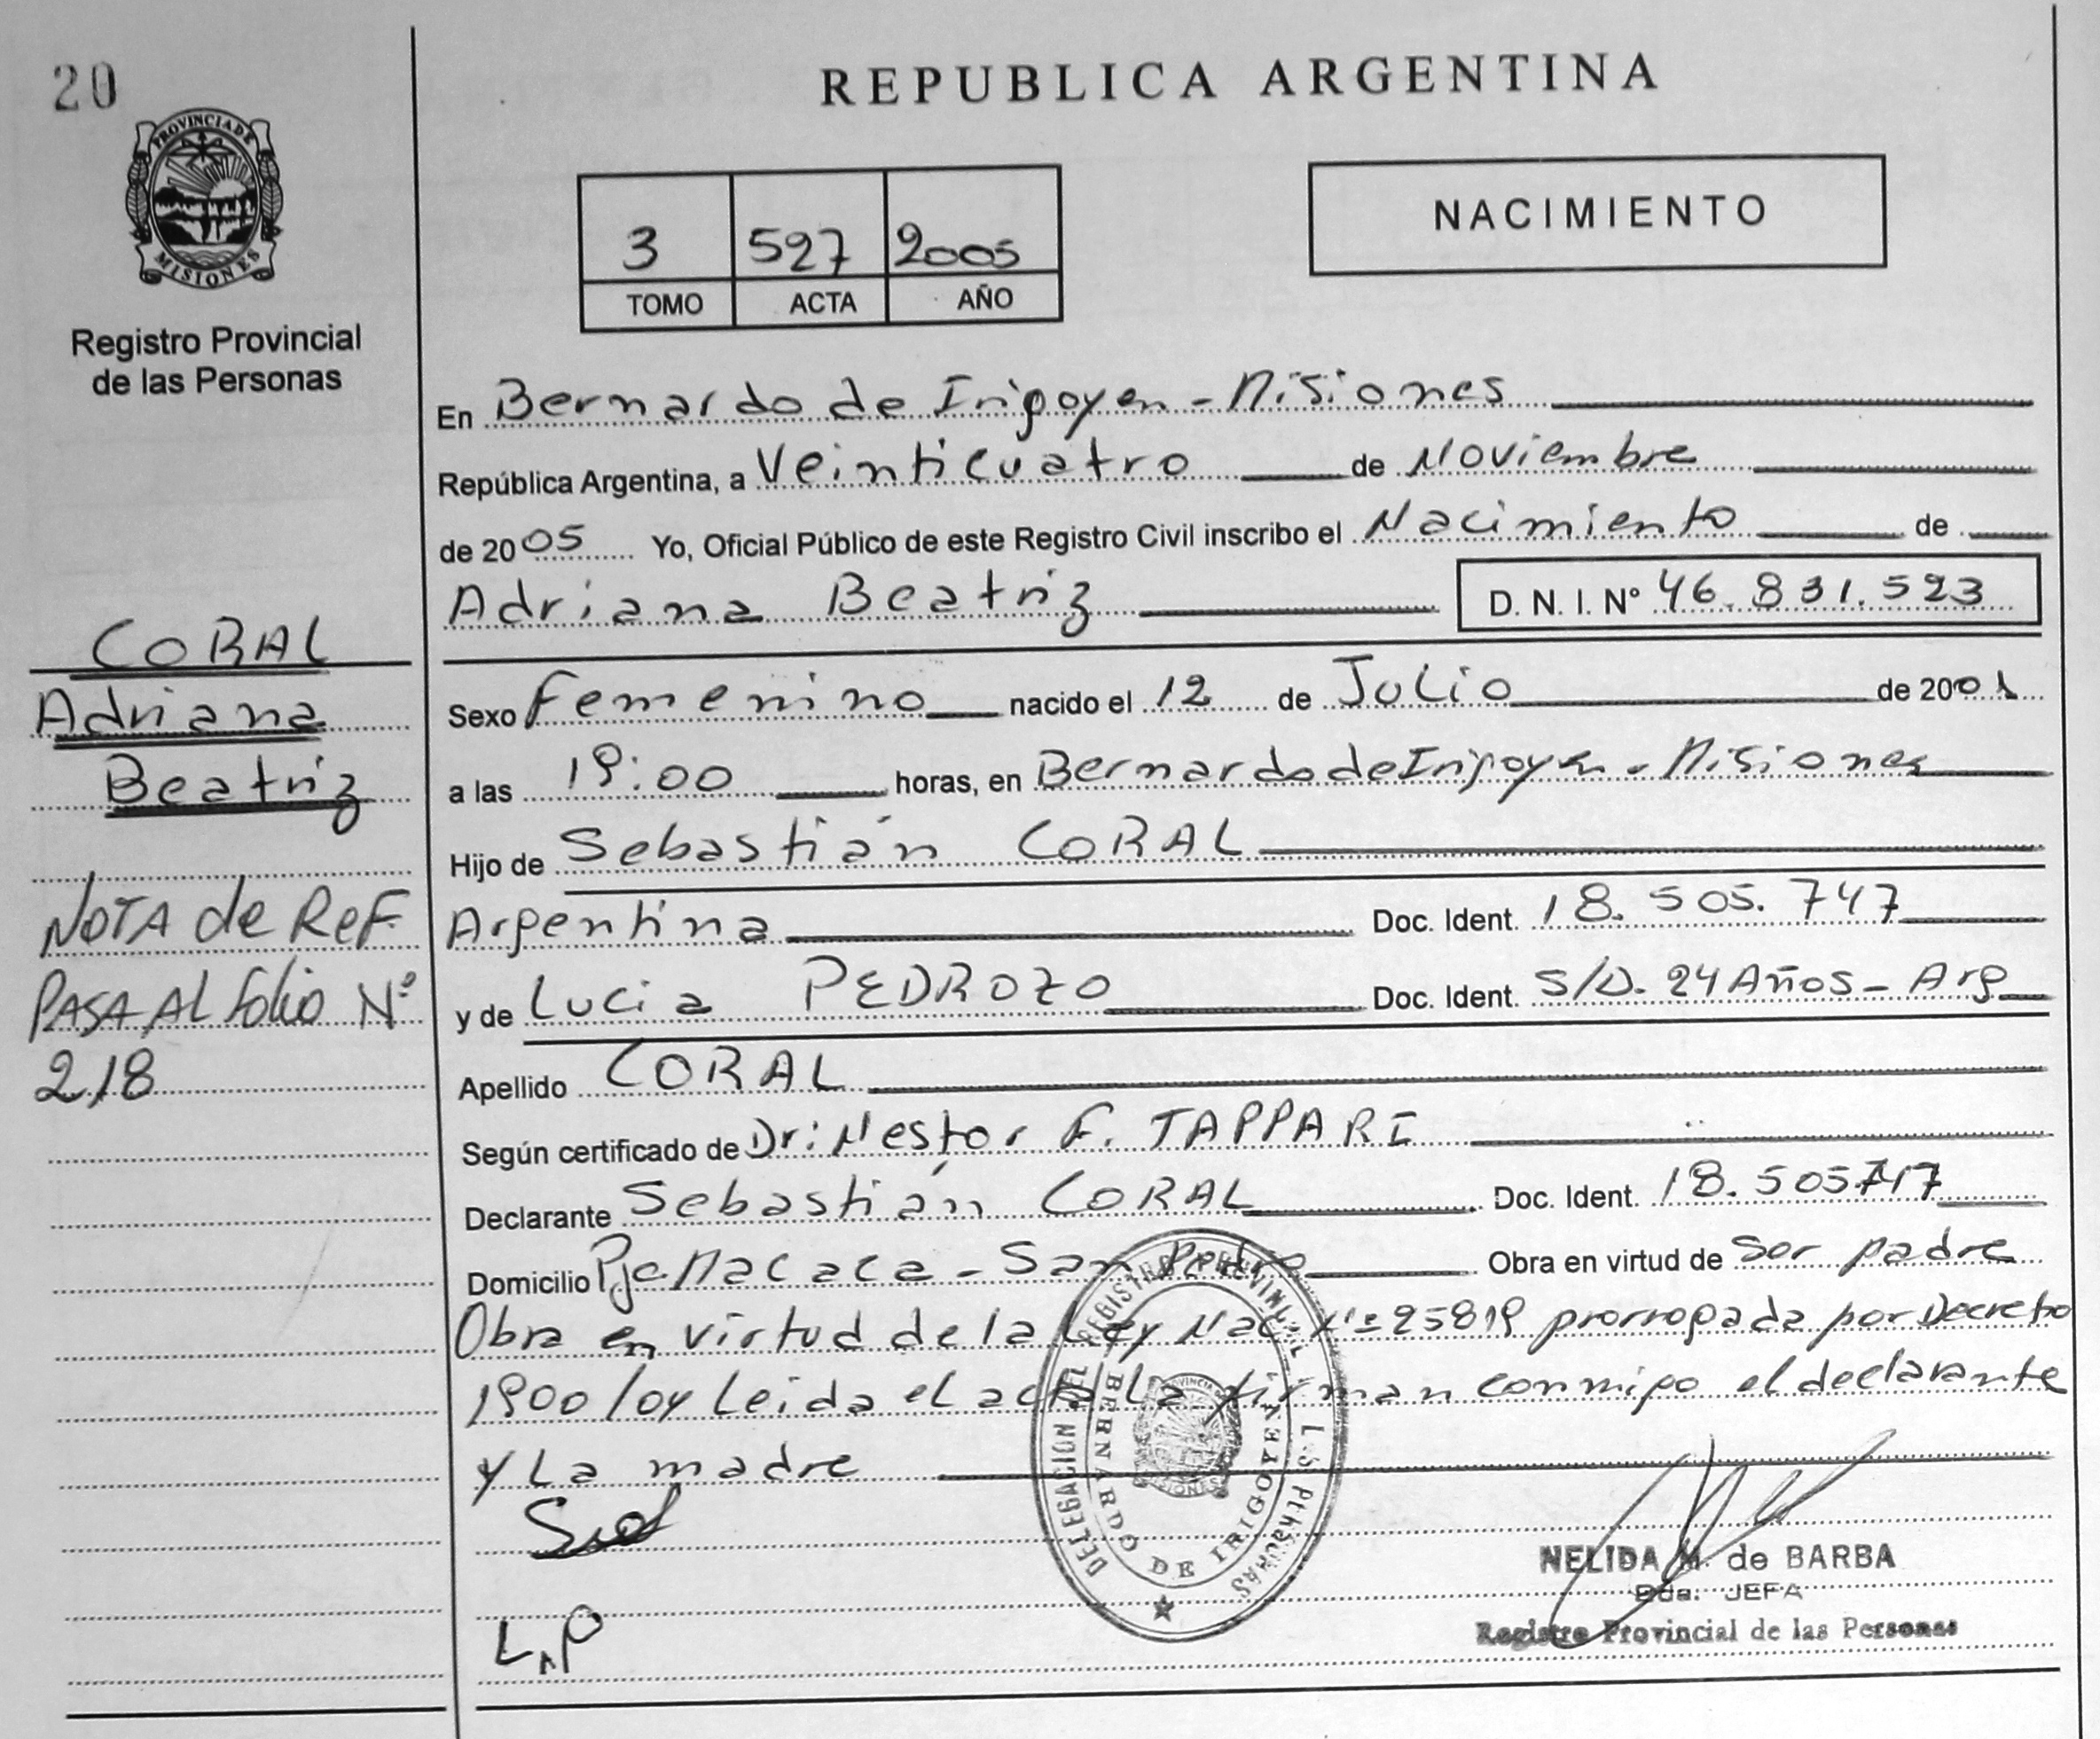 20
REPUBLICA ARGENTINA
PROVINCIA DE
MISIONES
Registro Provincial
de las Personas
3 527 2005
TOMO ACTA AÑO
NACIMIENTO
En Bernardo de Irigoyen - Misiones
República Argentina, a Veinticuatro de Noviembre
de 2005 Yo, Oficial Público de este Registro Civil inscribo el Nacimiento de
Adriana Beatriz D. N. I. Nº 46.831.523
CORAL
Adriana
Beatriz
Sexo Femenino nacido el 12 de Julio de 2001
a las 19:00 horas, en Bernardo de Irigoyen - Misiones
Hijo de Sebastián CORAL
Argentina Doc. Ident. 18.505.747
y de Lucia PEDROZO Doc. Ident. S/D. 24 Años - Arg
Apellido CORAL
NOTA de REF.
PASA AL folio Nº
218
Según certificado de Dr: Nestor F. TAPPARI
Declarante Sebastián CORAL Doc. Ident. 18.505.747
Domicilio Pje Macaca - San Pedro Obra en virtud de Ser padre
Obra en virtud de la Ley Nac. Nº 25819 prorrogada por Decreto
1900/04 Leida el acta La firman conmigo el declarante
y La madre
DELEGACION DEL REGISTRO PROVINCIAL DE LAS PERSONAS
BERNARDO DE IRIGOYEN
L.P
NELIDA M. de BARBA
Eda: JEFA
Registro Provincial de las Personas